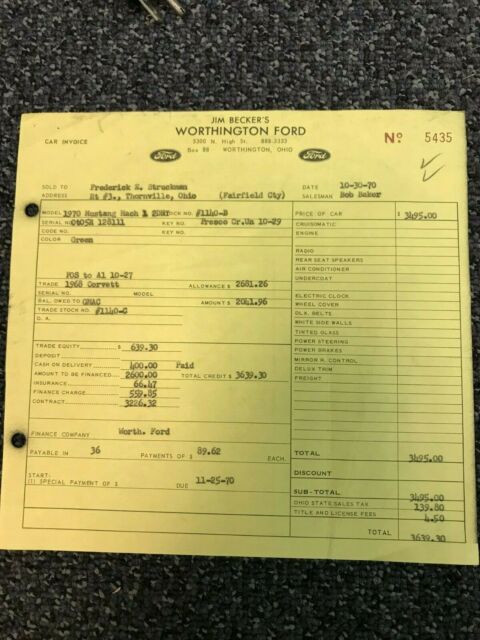 JIM BECKER'S
WORTHINGTON FORD
5300 N. High St. 888-3333
Box 88 - WORTHINGTON, OHIO
Ford
Ford
CAR INVOICE
No. 5435
SOLD TO Frederick E. Struckman
ADDRESS Rt #3., Thornville, Ohio (Fairfield Cty)
DATE 10-30-70
SALESMAN Bob Baker
MODEL 1970 Mustang Mach 1 2DHT STOCK NO. #1140-B
SERIAL NO. 0T05R 128111 KEY NO. Fresco Cr.Un 10-29
CODE NO. KEY NO.
COLOR Green
POS to Al 10-27
TRADE 1968 Corvett ALLOWANCE $ 2681.26
SERIAL NO. MODEL
BAL. OWED TO GMAC AMOUNT $ 2041.96
TRADE STOCK NO. #1140-C
O. A.
TRADE EQUITY $ 639.30
DEPOSIT
CASH ON DELIVERY 400.00 Paid
AMOUNT TO BE FINANCED 2600.00 TOTAL CREDIT $ 3639.30
INSURANCE 66.47
FINANCE CHARGE 559.85
CONTRACT 3226.32
FINANCE COMPANY Worth. Ford
PAYABLE IN 36 PAYMENTS OF $ 89.62 EACH
START:
(1) SPECIAL PAYMENT OF $ DUE 11-25-70
PRICE OF CAR $ 3495.00
CRUISOMATIC
ENGINE
RADIO
REAR SEAT SPEAKERS
AIR CONDITIONER
UNDERCOAT
ELECTRIC CLOCK
WHEEL COVER
DLX. BELTS
WHITE SIDE WALLS
TINTED GLASS
POWER STEERING
POWER BRAKES
MIRROR R. CONTROL
DELUX TRIM
FREIGHT
TOTAL 3495.00
DISCOUNT
SUB-TOTAL 3495.00
OHIO STATE SALES TAX 139.80
TITLE AND LICENSE FEES 4.50
TOTAL 3639.30